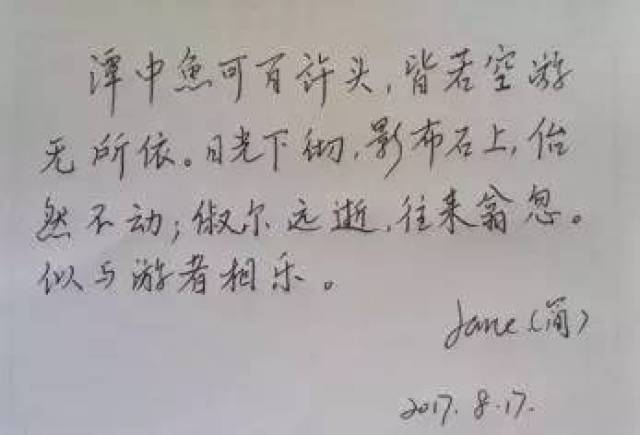 潭中魚可百许头，皆若空游
无所依。日光下彻，影布石上，佁
然不动；俶尔远逝，往来翕忽。
似与游者相乐。
Jane（简）
2017.8.17.